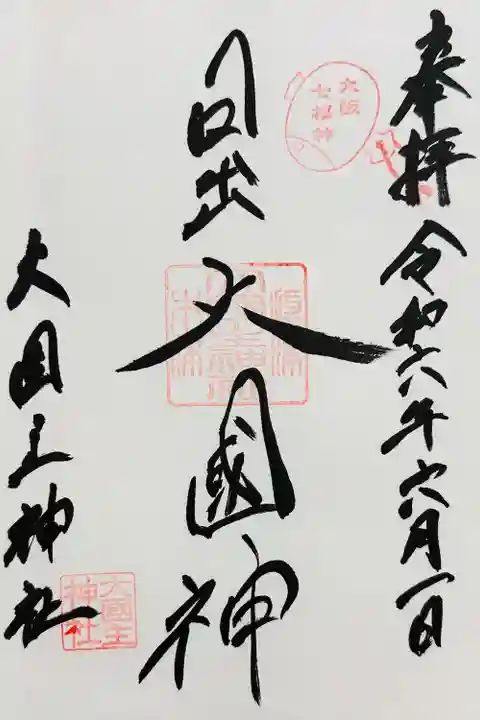 奉拝
令和六年六月一日
大阪
七福神
日出大國神
大国主神社
大國主
神社